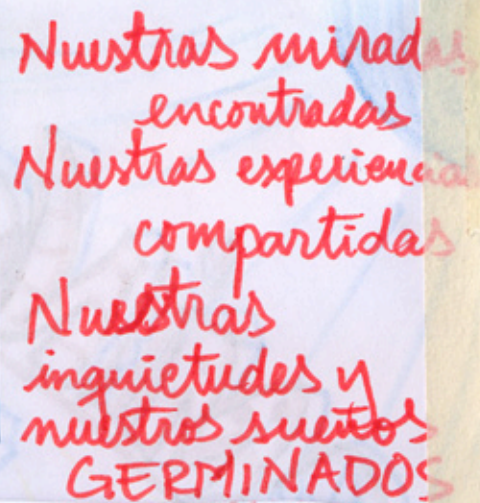 Nuestras miradas
encontradas
Nuestras experiencias
compartidas
Nuestras
inquietudes y
nuestros sueños
GERMINADOS